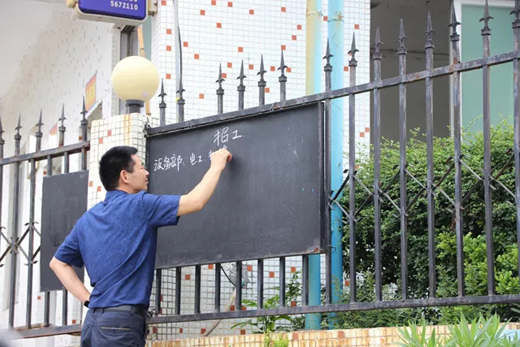 5672110
招工
设备部、电工